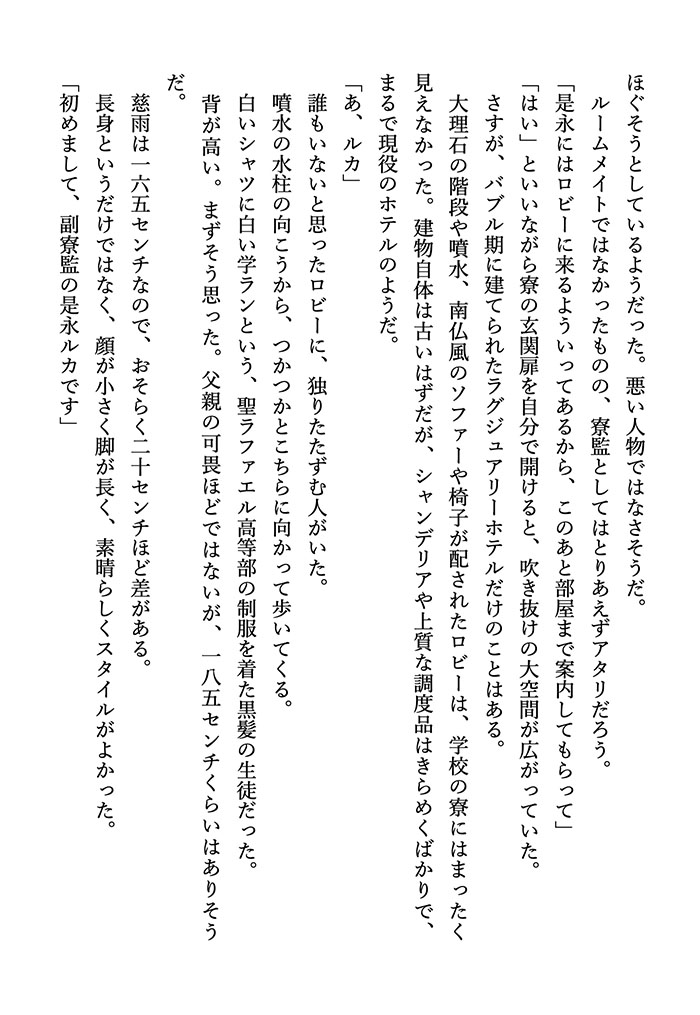 ほぐそうとしているようだった。悪い人物ではなさそうだ。
　ルームメイトではなかったものの、寮監としてはとりあえずアタリだろう。
「是永にはロビーに来るよういってあるから、このあと部屋まで案内してもらって」
「はい」といいながら寮の玄関扉を自分で開けると、吹き抜けの大空間が広がっていた。
　さすが、バブル期に建てられたラグジュアリーホテルだけのことはある。
　大理石の階段や噴水、南仏風のソファーや椅子が配されたロビーは、学校の寮にはまったく
見えなかった。建物自体は古いはずだが、シャンデリアや上質な調度品はきらめくばかりで、
まるで現役のホテルのようだ。
「あ、ルカ」
　誰もいないと思ったロビーに、独りたたずむ人がいた。
　噴水の水柱の向こうから、つかつかとこちらに向かって歩いてくる。
　白いシャツに白い学ランという、聖ラファエル高等部の制服を着た黒髪の生徒だった。
　背が高い。まずそう思った。父親の可畏ほどではないが、一八五センチくらいはありそう
だ。
　慈雨は一六五センチなので、おそらく二十センチほど差がある。
　長身というだけではなく、顔が小さく脚が長く、素晴らしくスタイルがよかった。
「初めまして、副寮監の是永ルカです」